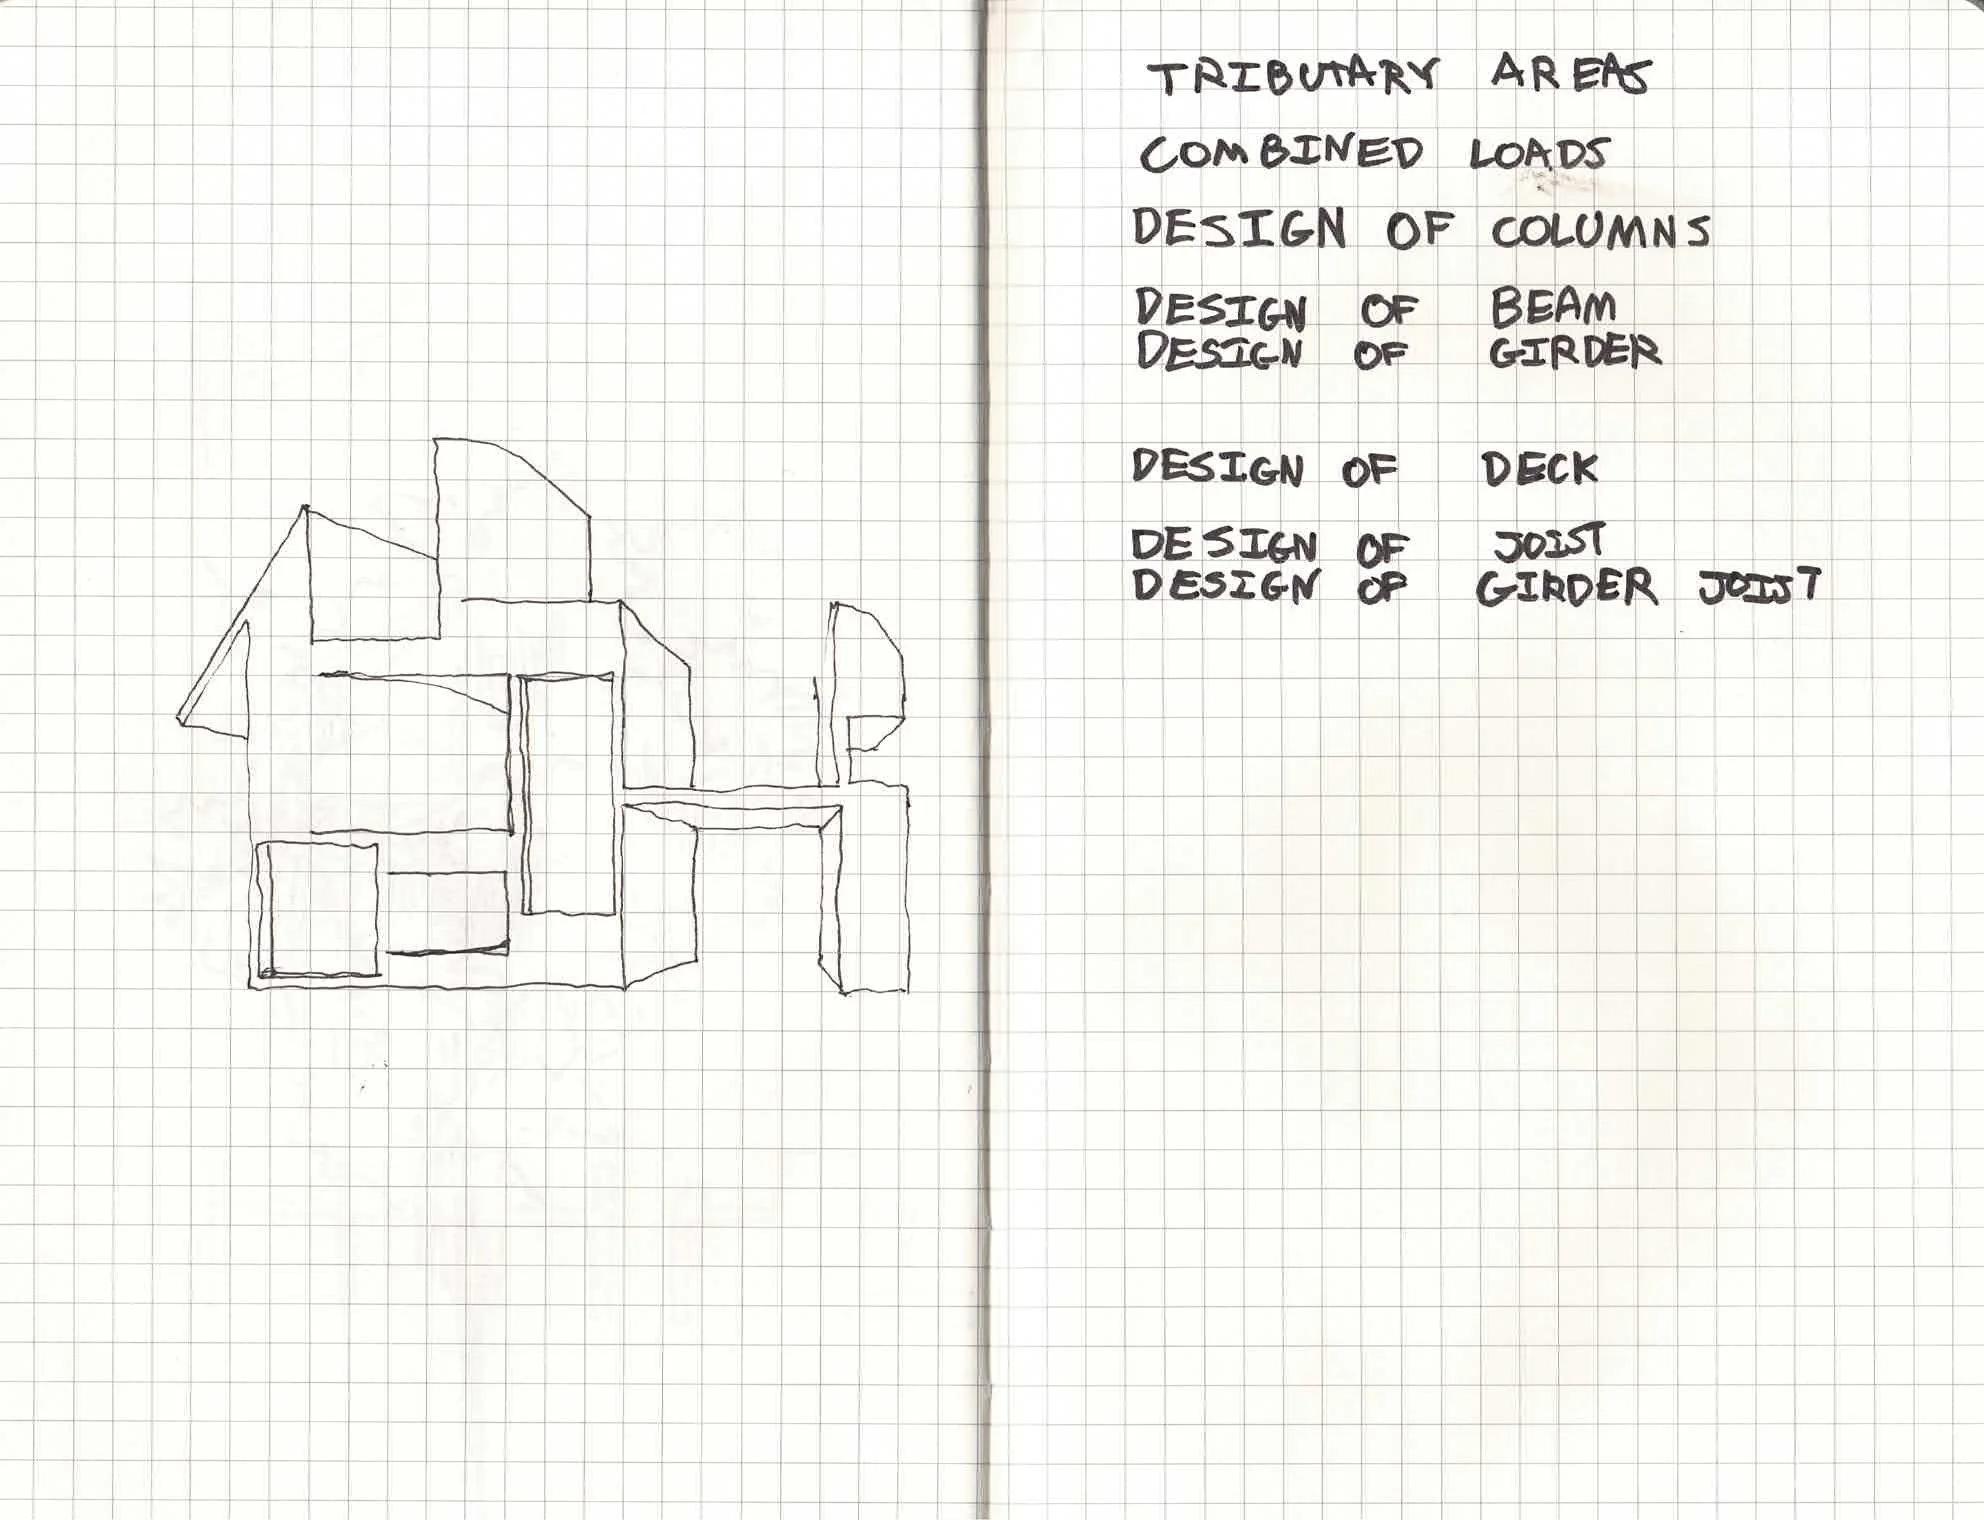 TRIBUTARY AREAS
COMBINED LOADS
DESIGN OF COLUMNS
DESIGN OF BEAM
DESIGN OF GIRDER
DESIGN OF DECK
DESIGN OF JOIST
DESIGN OF GIRDER JOIST